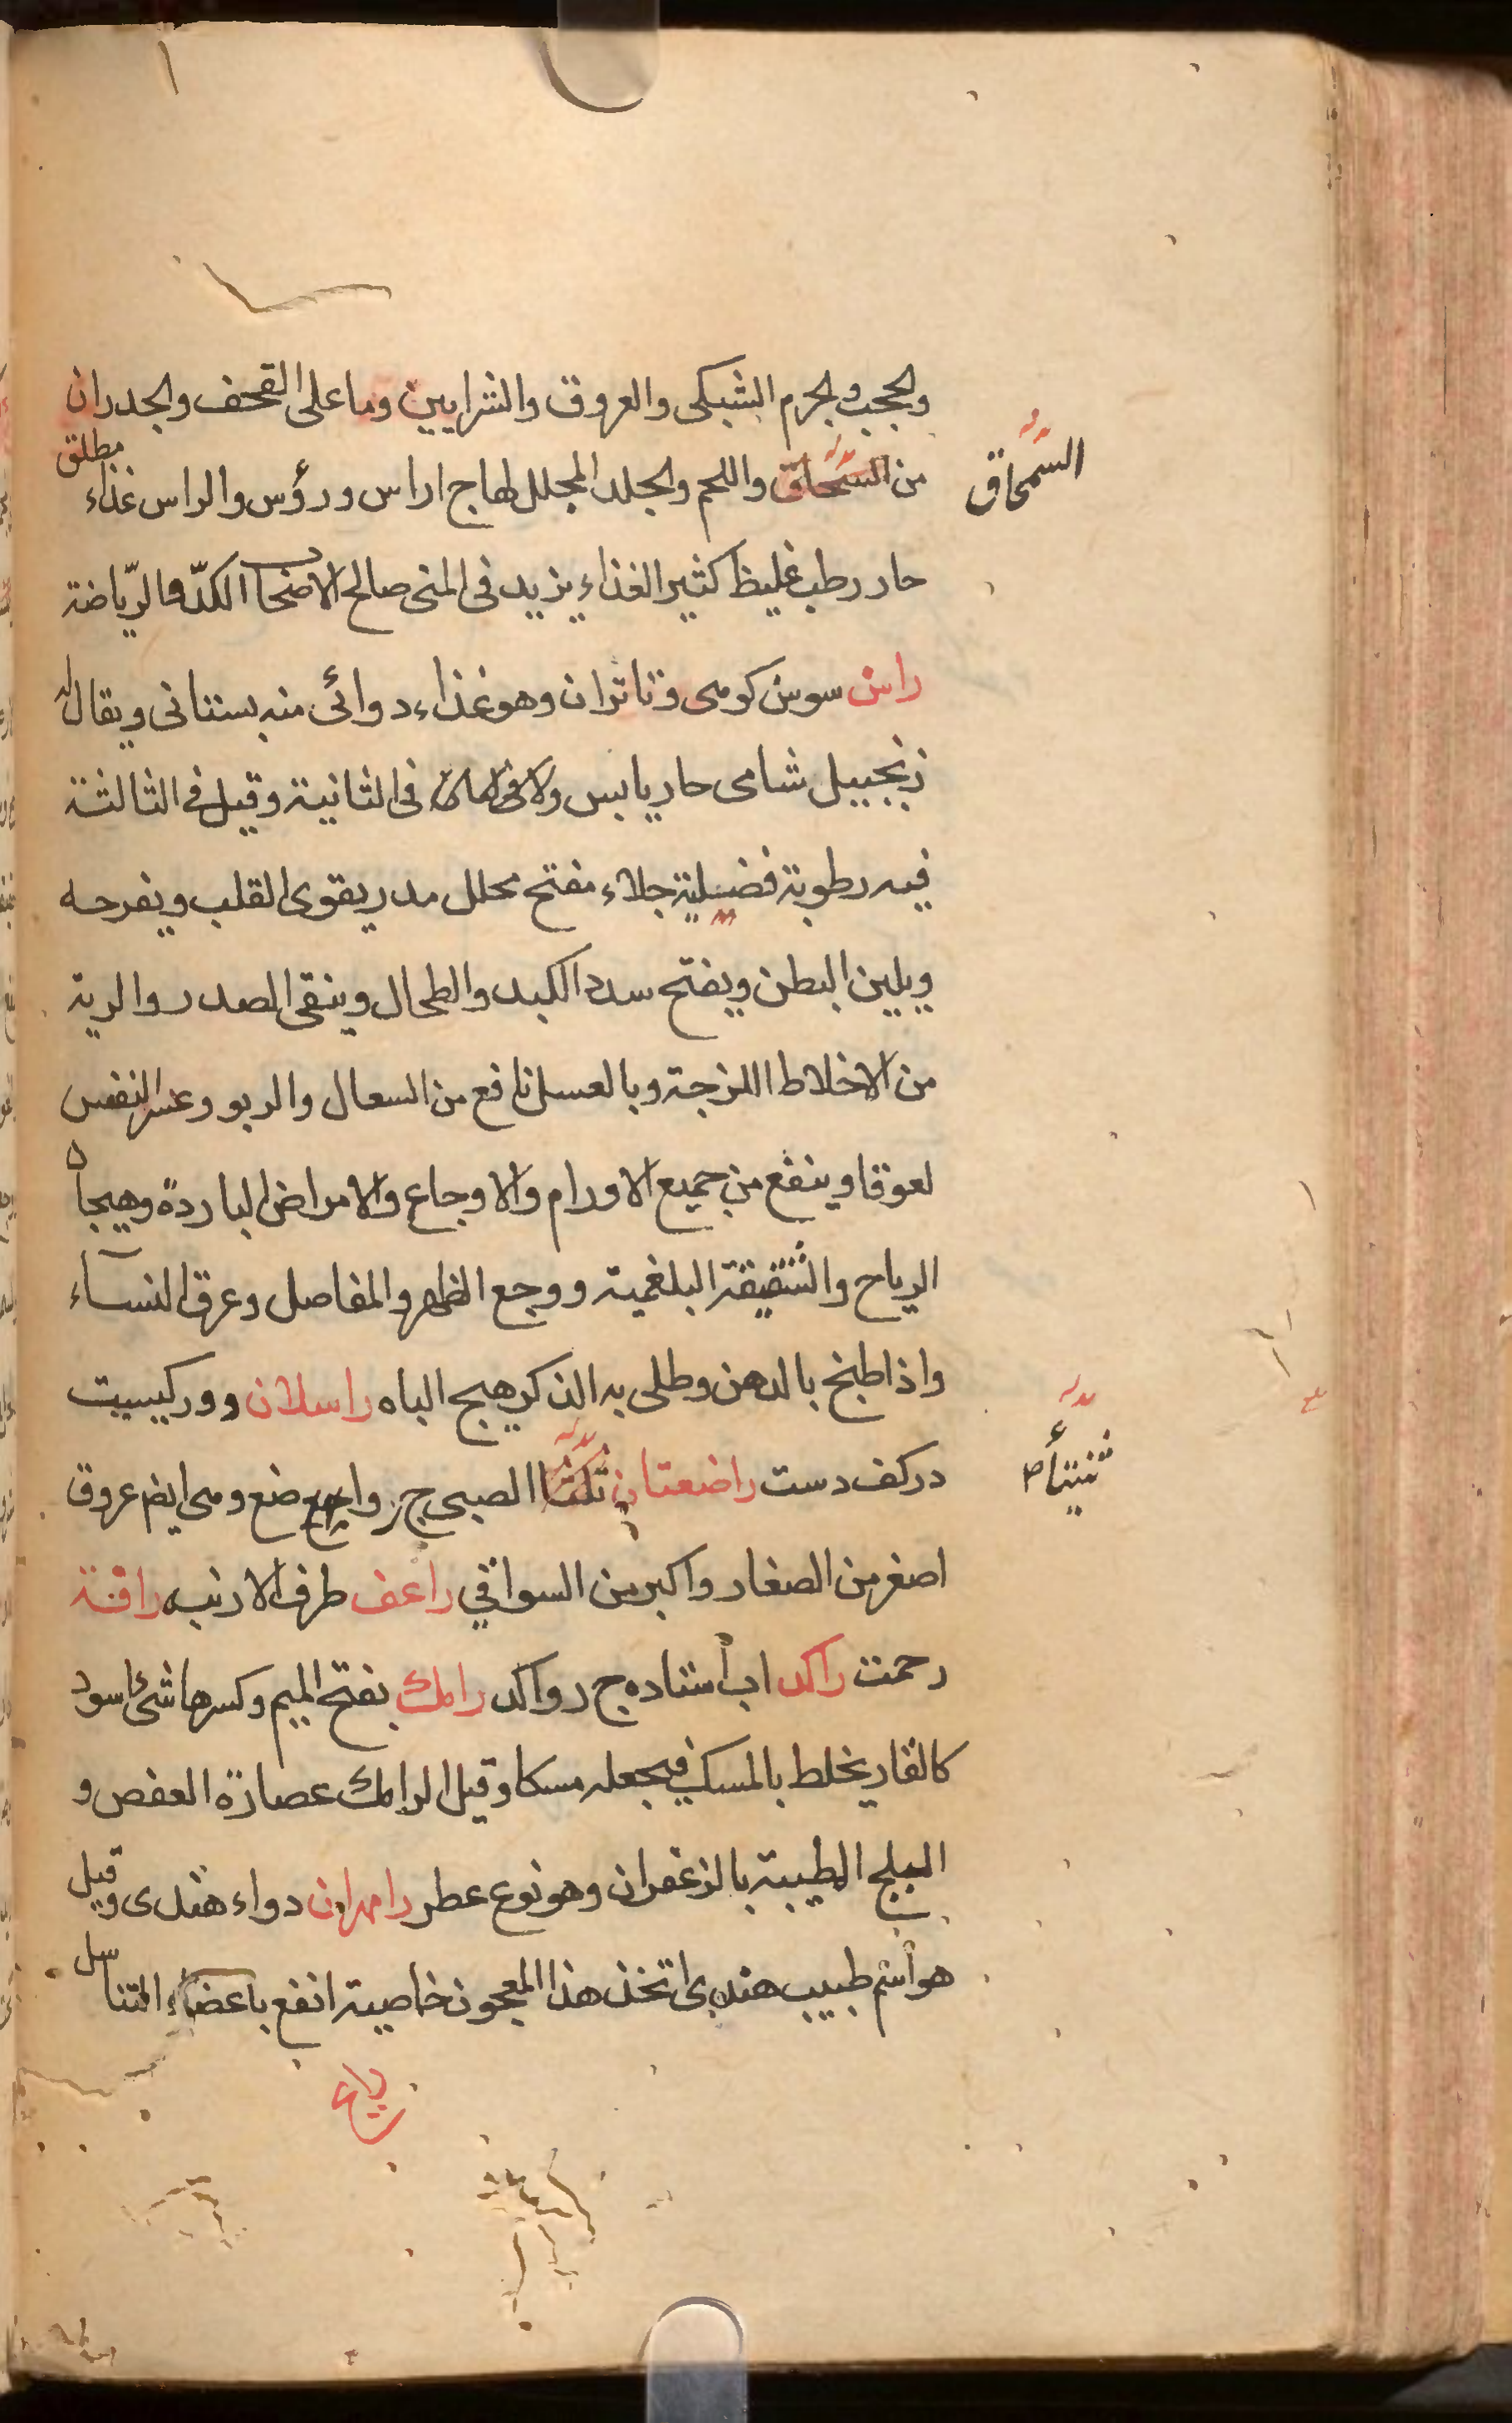 والحجب والجرم الشبكى والعروق والشرايين وما على القحف والجدران
من السمحاق واللحم والجلد المجلل لها ج اراس ورؤس والراس غذاء مطلق
السمحاق
حار رطب غليظ كثير الغذاء يزيد فى المنى صالح لاصحاب الكدّ والرّياضة
راسن سوسن كومى وناتران وهو غذاء دوائى منه بستانى ويقال له
زنجبيل شامى حار يابس فى الثانية وقيل فى الثالثة
فيه رطوبة فضيلية جلاء مفتح محلل مدر يقوى القلب ويفرحه
ويلين البطن ويفتح سدد الكبد والطحال وينقى الصدر والرية
من الاخلاط اللزجة وبالعسل نافع من السعال والربو وعسر النفس
لعوقا وينفع من جميع الاورام والاوجاع والامراض الباردة وهيجان
الرياح والشقيقة البلغمية ووجع الظهر والمفاصل وعرق النساء
واذا طبخ بالدهن وطلى به الذكر هيج الباه راسلان دو ركيست
در كف دست راضعتان الصبى ج رواضع ومى ايضا عروق
اصغر من الصغار واكبر من السواقي راعف طرف الارنبه رافة
رحمت راكد اب استاده ج رواكد رامك بفتح الميم وكسرها شئ اسود
كالقار يخلط بالمسك فيجعله مسكا وقيل الرامك عصارة العفص و
البلج المطيبة بالزعفران وهو نوع عطر رامهران دواء هندى وقيل
هو اسم طبيب هندى اتخذ هذا المعجون خاصيته انفع باعضاء التناسل